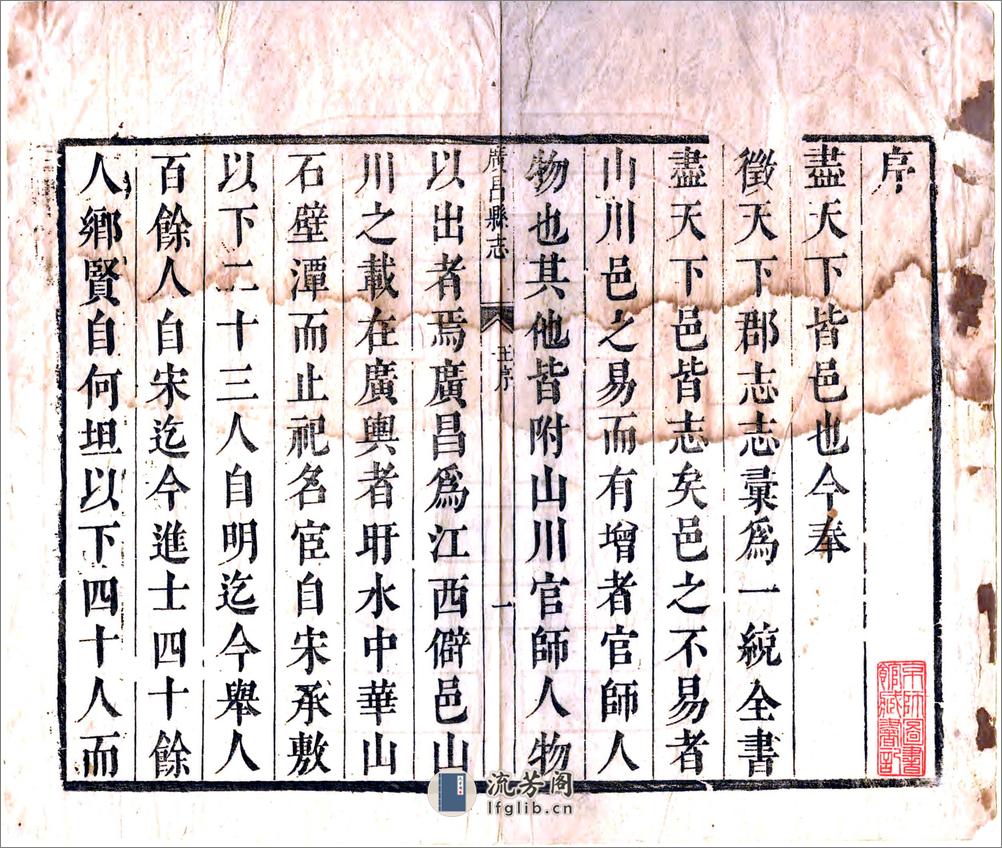 序
盡天下皆邑也今奉
徵天下郡志志彙爲一統全書
盡天下邑皆志矣邑之不易者
山川邑之易而有增者官師人
物也其他皆附山川官師人物
廣昌縣志
王序
一
以出者焉廣昌爲江西僻邑山
川之載在廣輿者盱水中華山
石壁潭而止祀名宦自宋承敷
以下二十三人自明迄今舉人
百餘人自宋迄今進士四十餘
人鄉賢自何坦以下四十人而
流芳阁
lfglib.cn